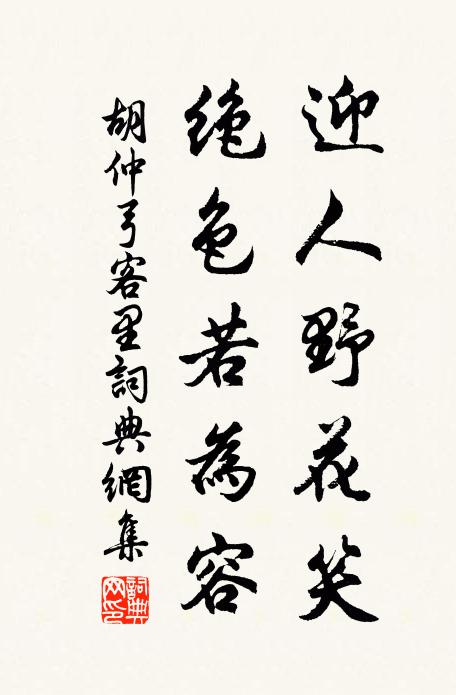 迎人野花笑
绝色若為容
胡仲弓客里詞典網集
詞典网印